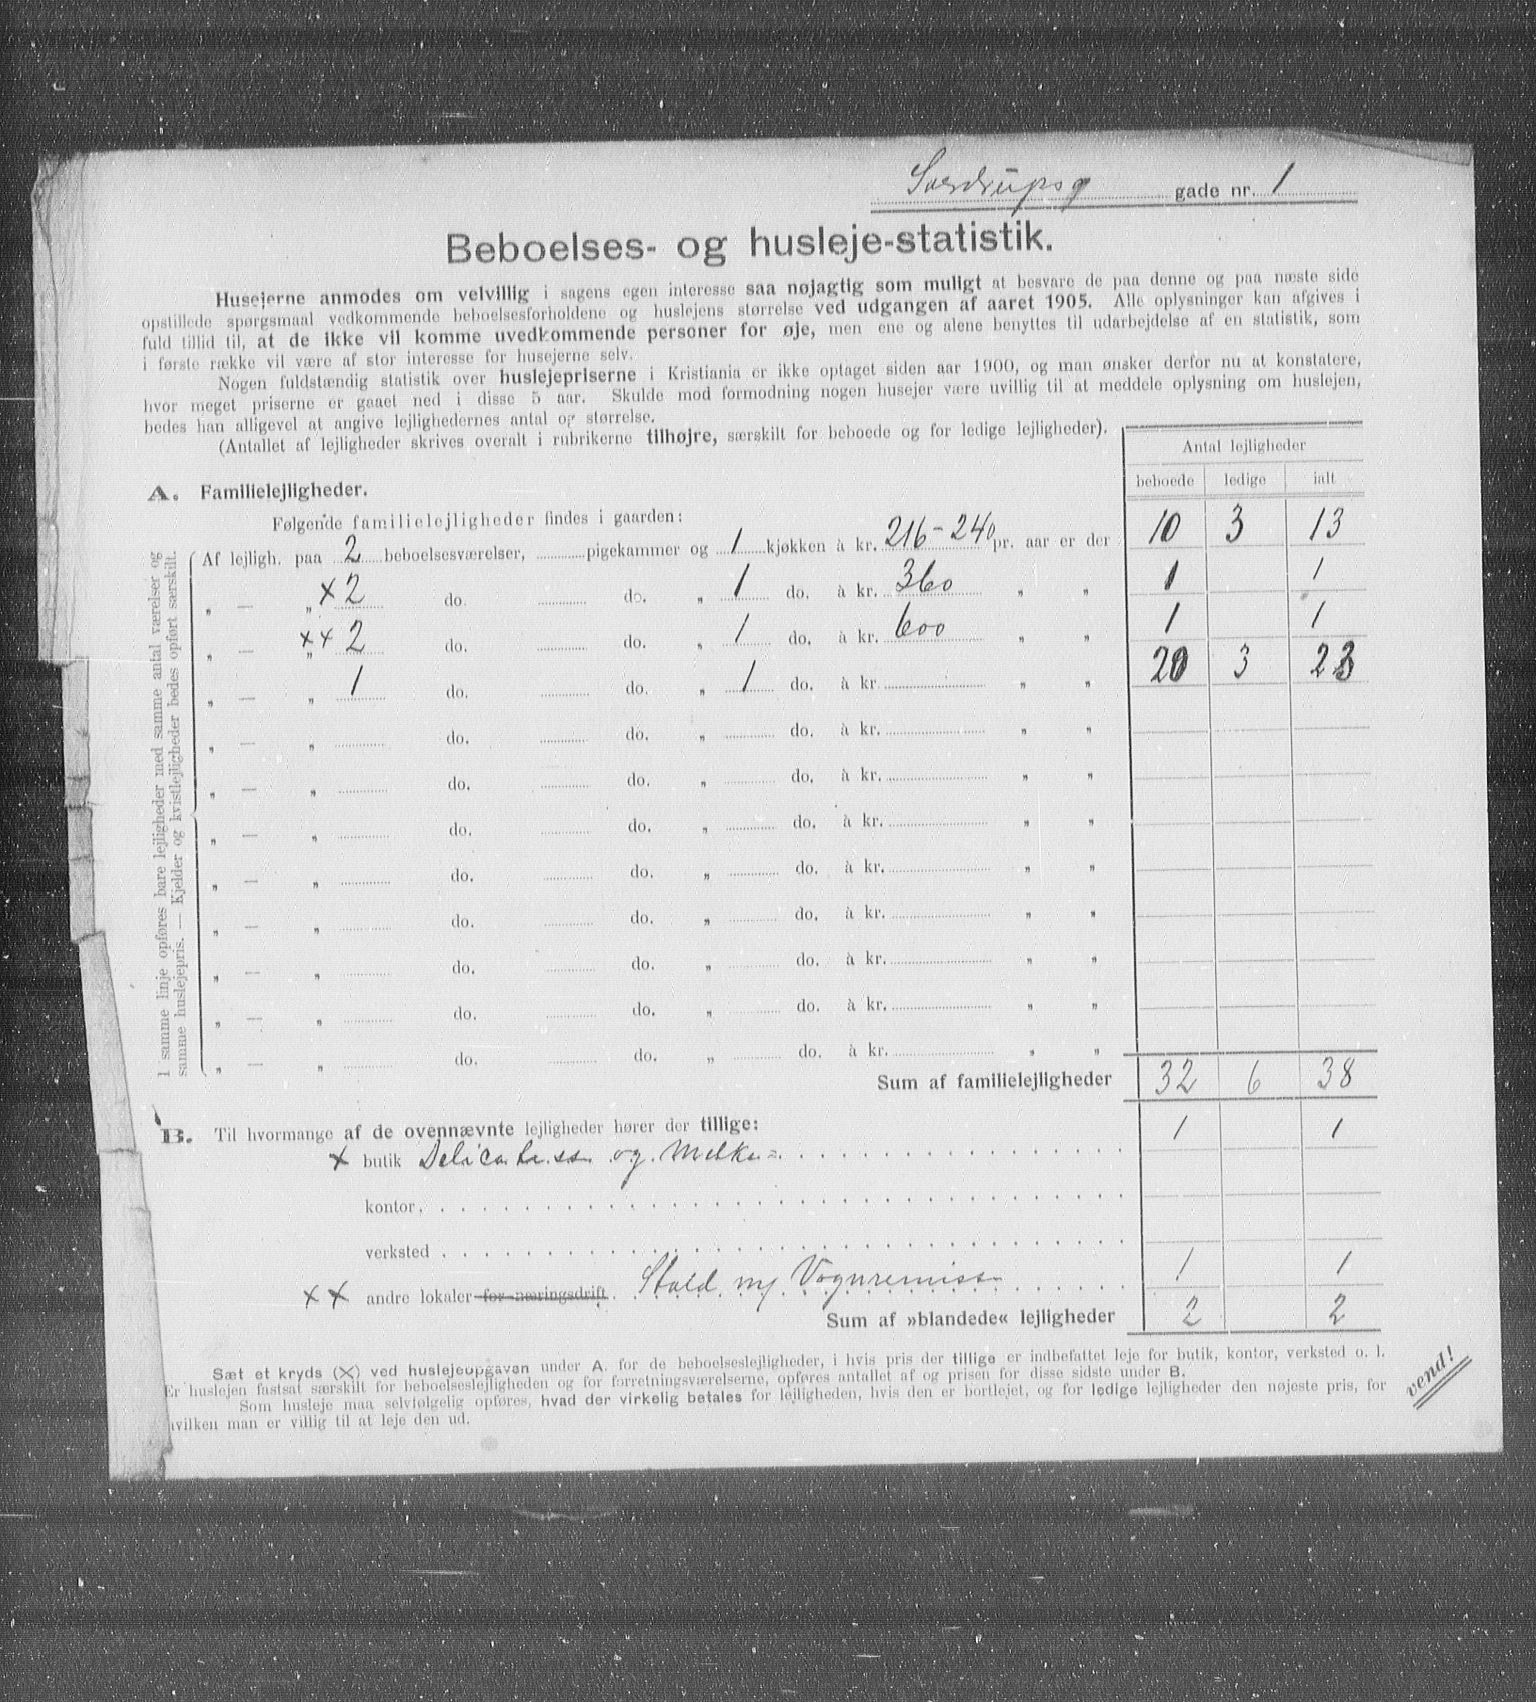 Sverdrupsg gade nr. 1
Beboelses- og husleje-statistik.
Husejerne anmodes om velvillig i sagens egen interesse saa nøjagtig som muligt at besvare de paa denne og paa næste side
opstillede spørgsmaal vedkommende beboelsesforholdene og huslejens størrelse ved udgangen af aaret 1905. Alle oplysninger kan afgives i
fuld tillid til, at de ikke vil komme uvedkommende personer for øje, men ene og alene benyttes til udarbejdelse af en statistik, som
i første række vil være af stor interesse for husejerne selv.
Nogen fuldstændig statistik over huslejepriserne i Kristiania er ikke optaget siden aar 1900, og man ønsker derfor nu at konstatere,
hvor meget priserne er gaaet ned i disse 5 aar. Skulde mod formodning nogen husejer være uvillig til at meddele oplysning om huslejen,
bedes han alligevel at angive lejlighedernes antal og størrelse.
(Antallet af lejligheder skrives overalt i rubrikerne tilhøjre, særskilt for beboede og for ledige lejligheder).
Antal lejligheder
beboede ledige ialt
A. Familielejligheder.
Følgende familielejligheder findes i gaarden:
Af lejligh. paa 2 beboelsesværelser, pigekammer og 1 kjøkken à kr. 216-240 pr. aar er der 10 3 13
„ — „ × 2 do. do. „ 1 do. à kr. 360 „ „ 1 1
„ — „ ×× 2 do. do. „ 1 do. à kr. 600 „ „ 1 1
„ — „ 1 do. do. „ 1 do. à kr „ „ 20 3 23
„ — „ do. do. „ do. à kr. „ „
„ — „ do. do. „ do. à kr. „ „
„ — „ do. do. „ do. à kr. „ „
„ — „ do. do. „ do. à kr. „ „
„ — „ do. do. „ do. à kr. „ „
„ — „ do. do. „ do. à kr. „ „
„ — „ do. do. „ do. à kr. „ „
„ — „ do. do. „ do. à kr. „ „
I samme linje opføres bare lejligheder med samme antal værelser og
samme huslejepris. — Kjelder og kvistlejligheder bedes opført særskilt.
Sum af familielejligheder 32 6 38
B. Til hvormange af de ovennævnte lejligheder hører der tillige:
× butik Delicatess og Melke= 1 1
kontor.
verksted
×× andre lokaler for næringsdrift. Stald og Vognremiss 1 1
Sum af »blandede« lejligheder 2 2
Sæt et kryds (×) ved huslejeopgaven under A. for de beboelseslejligheder, i hvis pris der tillige er indbefattet leje for butik, kontor, verksted o. l.
Er huslejen fastsat særskilt for beboelseslejligheden og for forretningsværelserne, opføres antallet af og prisen for disse sidste under B.
Som husleje maa selvfølgelig opføres, hvad der virkelig betales for lejligheden, hvis den er bortlejet, og for ledige lejligheder den nøjeste pris, for
hvilken man er villig til at leje den ud.
vend!